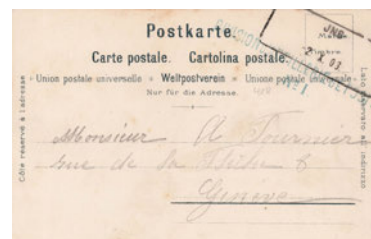 Postkarte.
Carte postale. Cartolina postale.
Union postale universelle Weltpostverein Unione postale universale
Nur für die Adresse.
Côté réservé à l'adresse
Lato riservato all'indirizzo
Monsieur A Tournier
rue de la
Genève